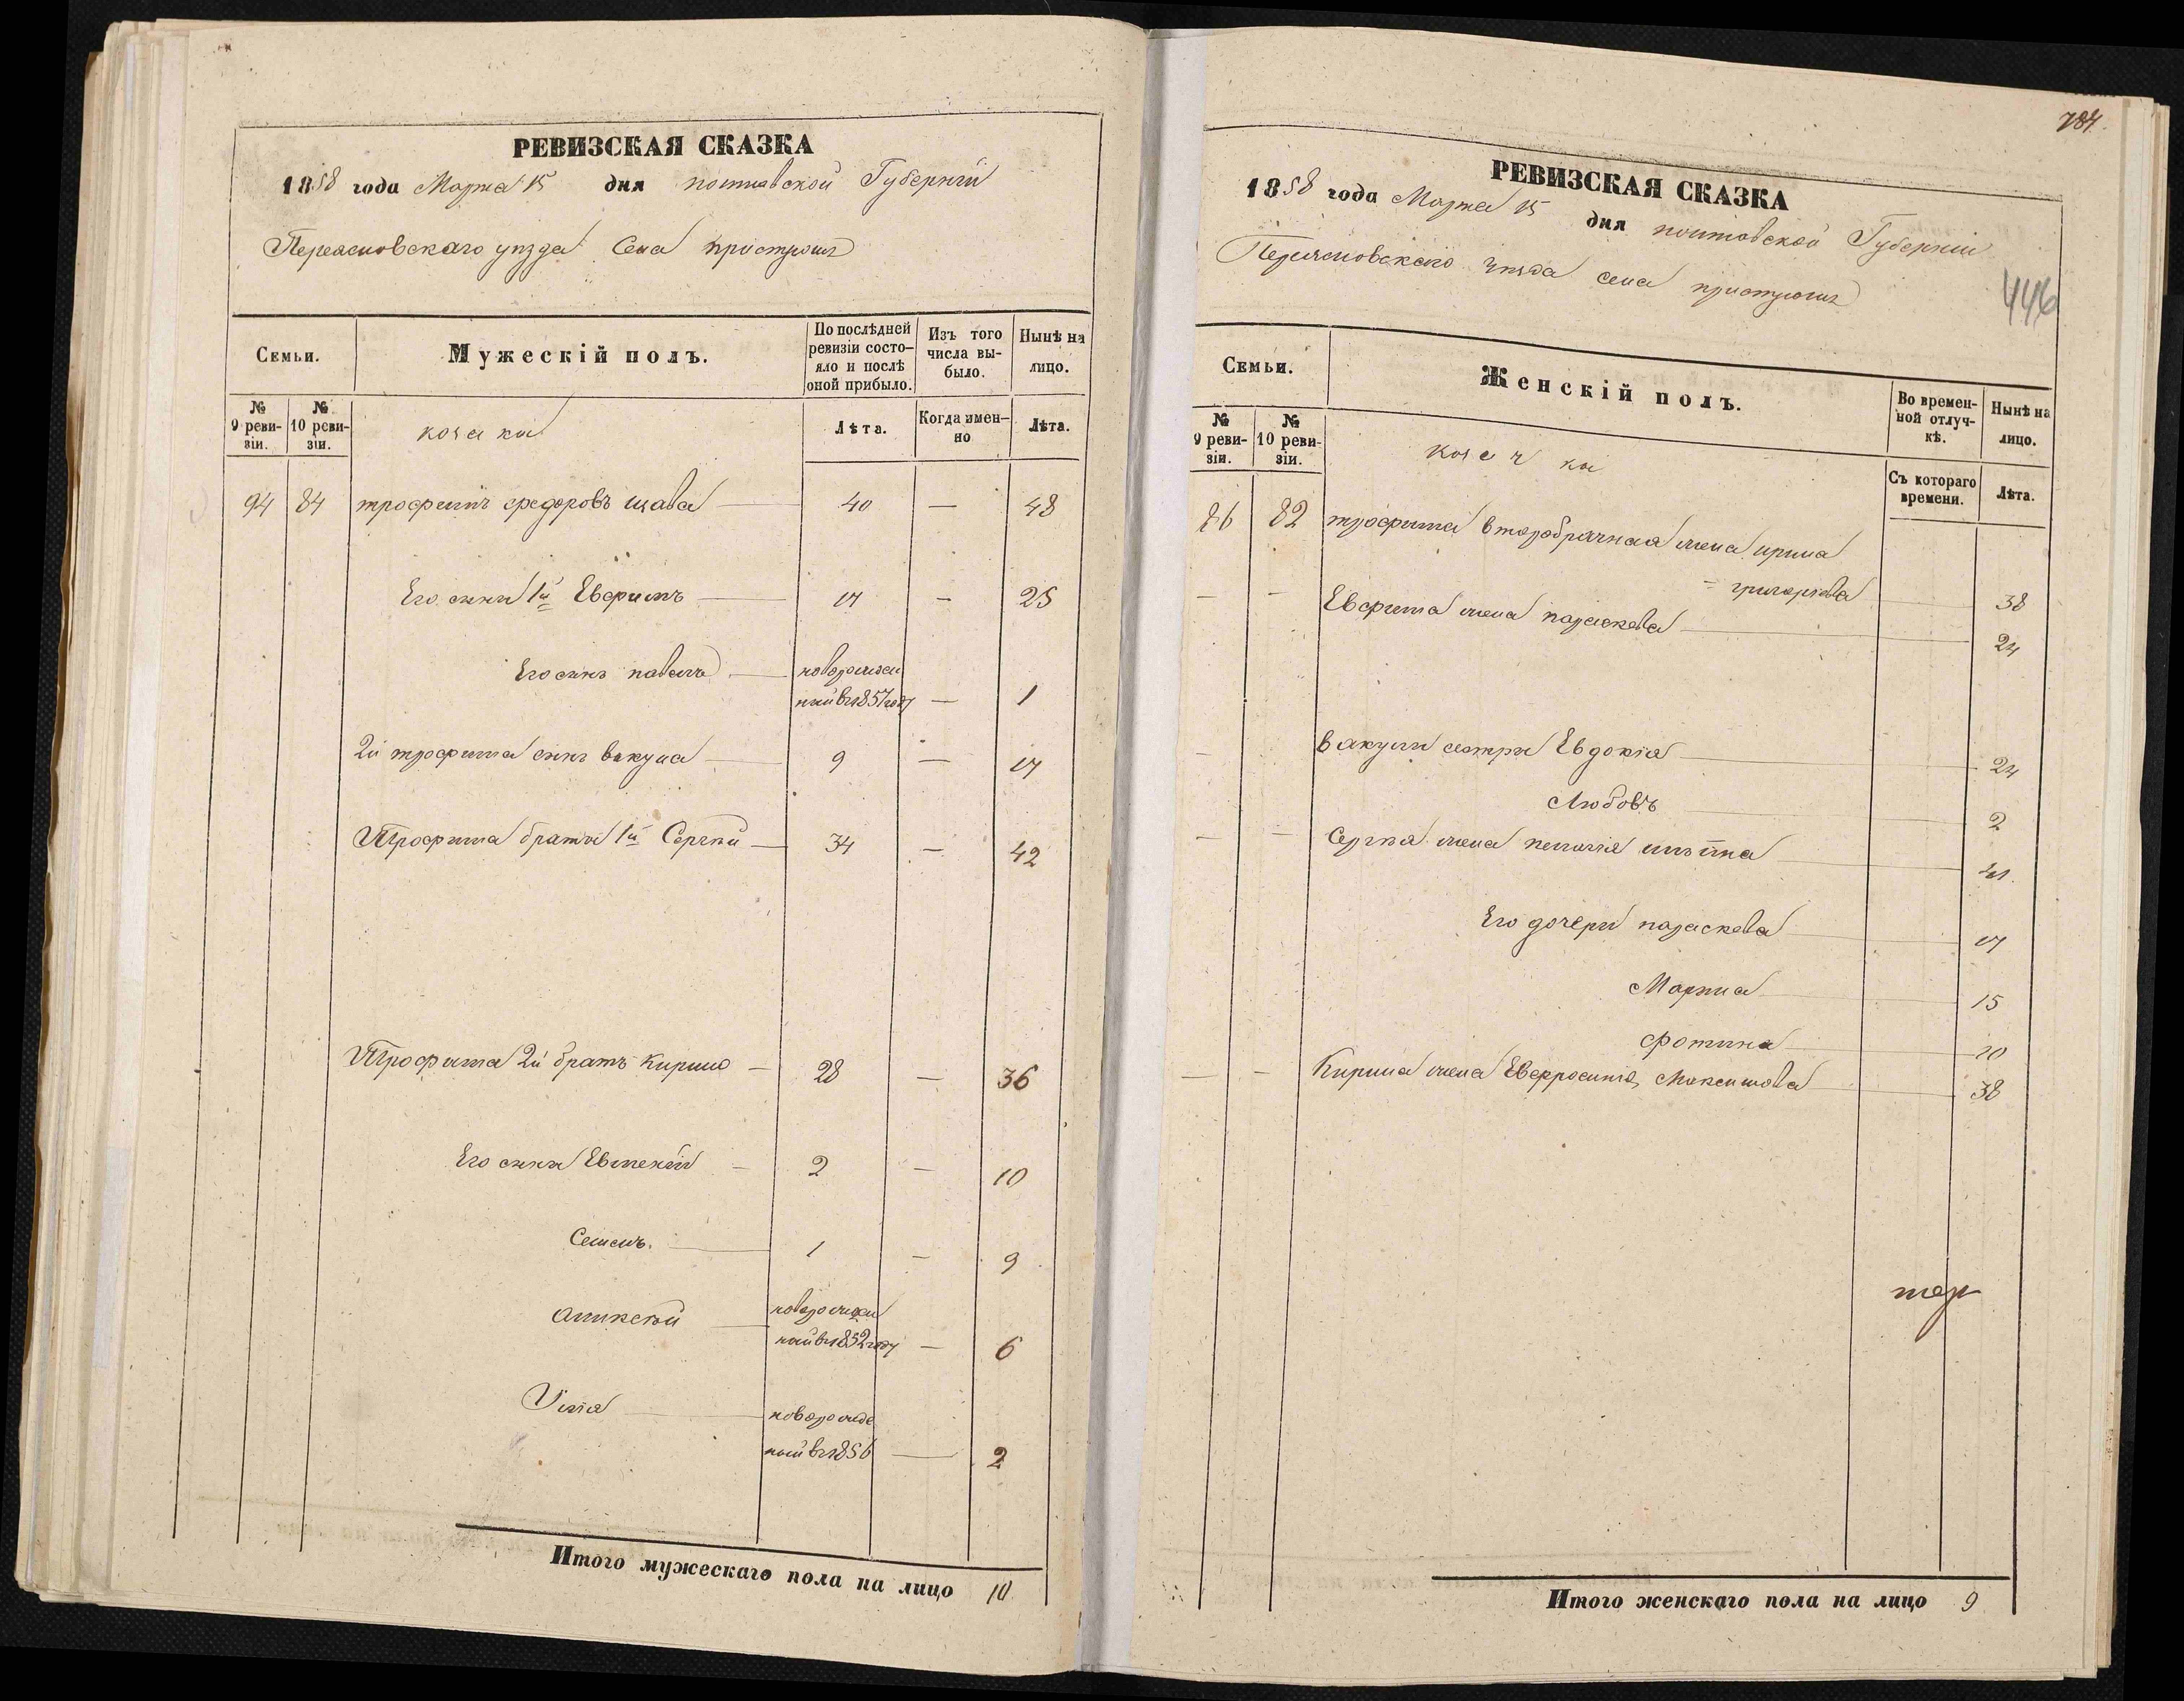 РЕВИЗСКАЯ СКАЗКА
1858 года Марта 15 дня полтавской Губерніи
Переясловскаго уезда Села пристромъ
Семьи.
Мужескій полъ.
По послѣдней ревизіи состо-
яло и послѣ
оной прибыло.
Изъ того
числа вы-
было.
Нынѣ на
лицо.
№
9 реви-
зіи.
№
10 реви-
зіи.
козаки
Лѣта.
Когда имен-
но
Лѣта.
94 84 трофимъ федоровъ 40 — 48
Его сини 1й Евфимъ 17 — 25
Его синъ павелъ новорожден
ный в 1857 году — 1
2й трофима синъ вакула 9 — 17
Трофима брати 1й Сергій 34 — 42
Трофима 2й братъ Кирило 28 — 36
Его сини Евтехій 2 — 10
Семенъ. 1 — 9
Аликсѣй новорожден
ный в 1852 году — 6
Илія новорожде
ный в 1856 — 2
Итого мужескаго пола на лицо 10
784.
446
РЕВИЗСКАЯ СКАЗКА
1858 года Марта 15 дня полтовской Губерніи
Переясловскаго уезда села пристромъ
Семьи.
Женскій полъ.
Во времен-
ной отлуч-
кѣ.
Нынѣ на
лицо.
№
9 реви-
зіи.
№
10 реви-
зіи.
козачки
Съ котораго
времени.
Лѣта.
86 82 трофима второбрачная жена ирина
григорьева 38
— — Евфима жена параскева 24
— вакули сестри Евдокія 24
Любовъ 2
— — Сергія жена пелагія 41
Его дочери параскева 17
Марина 15
фотина 10
— — Кирила жена Евфросинія Максимова 38
Итого женскаго пола на лицо 9